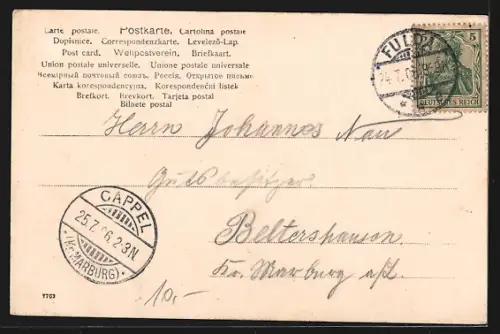 Carte postale. Postkarte. Cartolina postale
Dopisnice. Correspondenzkarte. Levelező-Lap.
Post card. Weltpostverein. Briefkaart.
Union postale universelle. Unione postale universale
Всемірный почтовый союзъ. Россія. Открытое письмо
Karta korespondencyjna. Korespondenční listek
Brefkort. Brevkort. Tarjeta postal
Bilhete postal
FULDA
5
DEUTSCHES REICH
Herrn Johannes Nau
Gutsbesitzer
CAPPEL
25.7.06.2-3N.
(Kr. MARBURG)
Beltershausen
Kr. Marburg a/L.
10,-